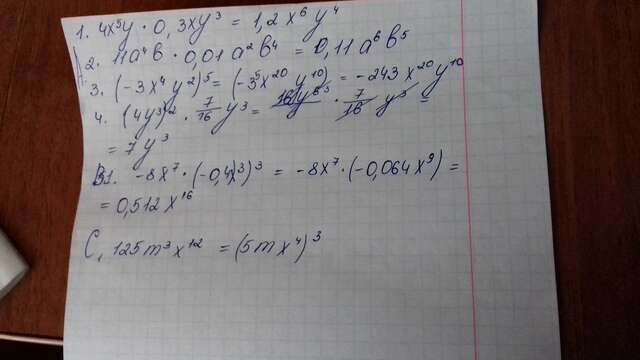 1. 4x⁵y · 0,3xy³ = 1,2x⁶y⁴
2. 11a⁴b · 0,01a²b⁴ = 0,11a⁶b⁵
3. (-3x⁴y²)⁵ = (-3⁵x²⁰y¹⁰) = -243x²⁰y¹⁰
4. (4y³)² · 7/16 y³ = 16y · 7/16 y³ =
= 7y³
B1. -8x⁷ · (-0,4x³)³ = -8x⁷ · (-0,064x⁹) =
= 0,512x¹⁶
C, 125m³x¹² = (5mx⁴)³